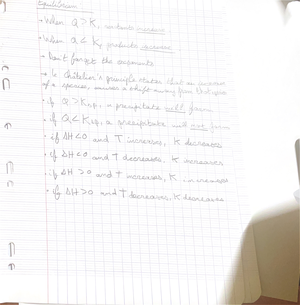 Equilibrium
- When Q > K, reactants increase
- When Q < K, products increase
- Don't forget the exponents
- Le Châtelier's principle states that an increase
of a species, causes a shift away from that species
- if Q > Ksp, a precipitate will form
- if Q < Ksp, a precipitate will not form
- if ΔH < 0 and T increases, K decreases
- if ΔH < 0 and T decreases, K increases
- if ΔH > 0 and T increases, K increases
- if ΔH > 0 and T decreases, K decreases